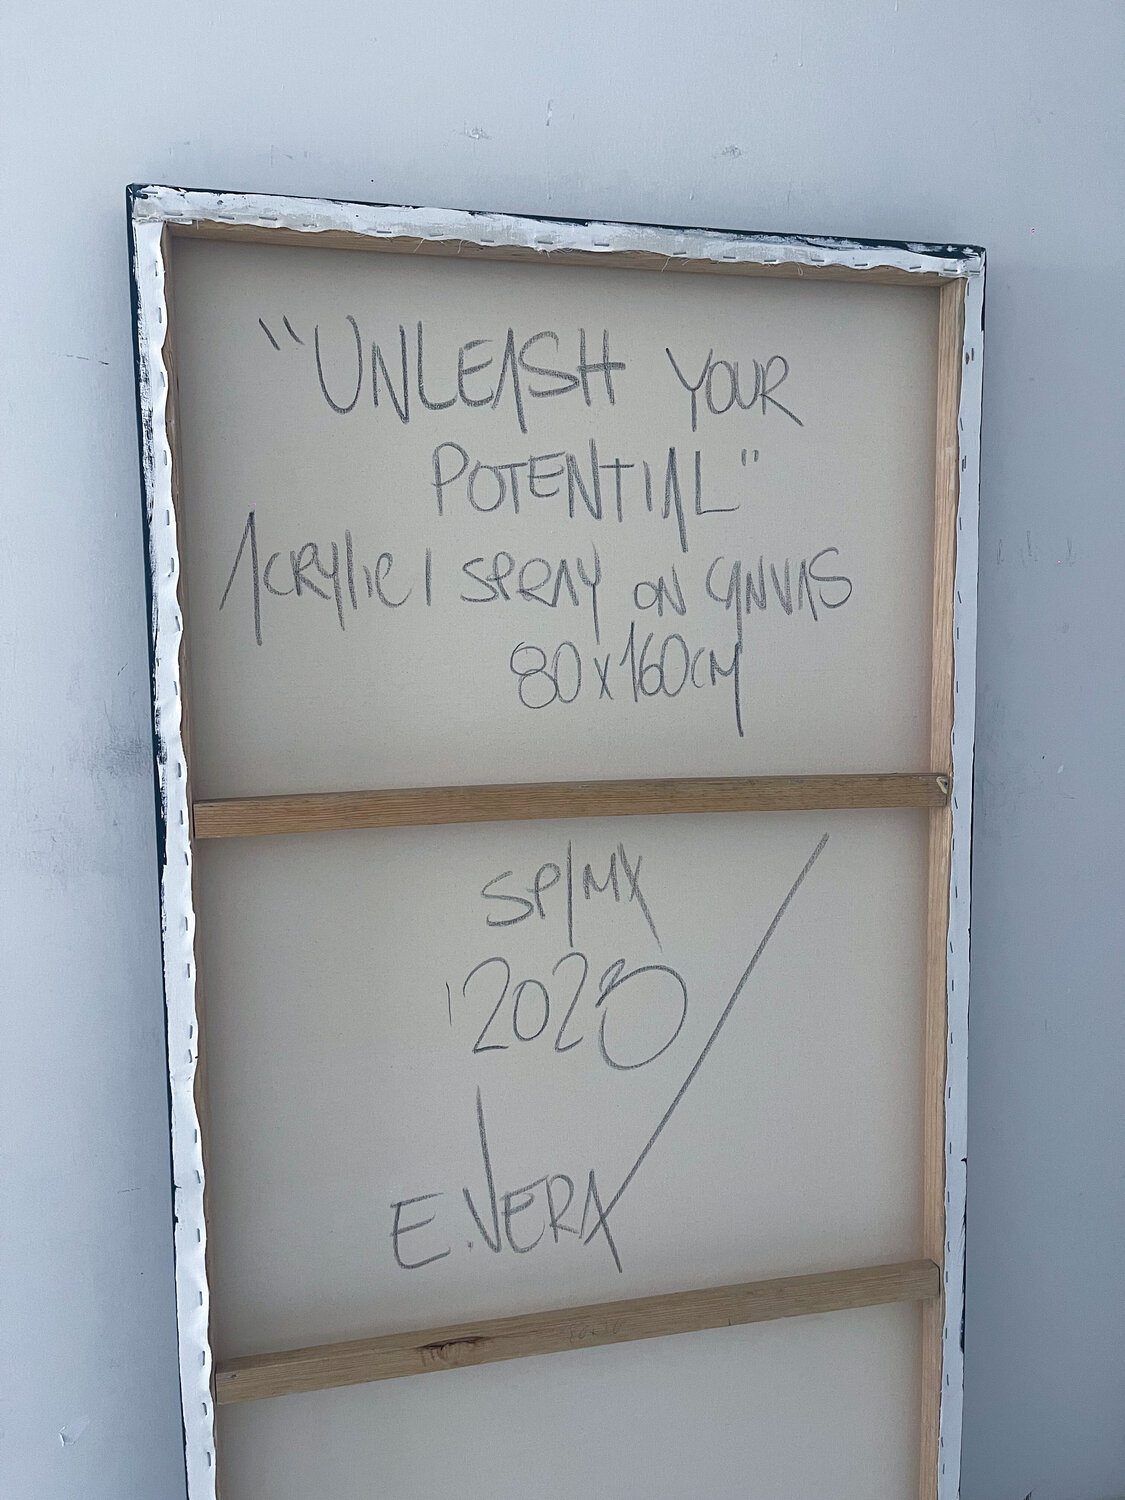 "UNLEASH YOUR
POTENTIAL"
ACRYLIC | SPRAY ON CANVAS
80x160CM
SP/MX
'2023
E.VERA